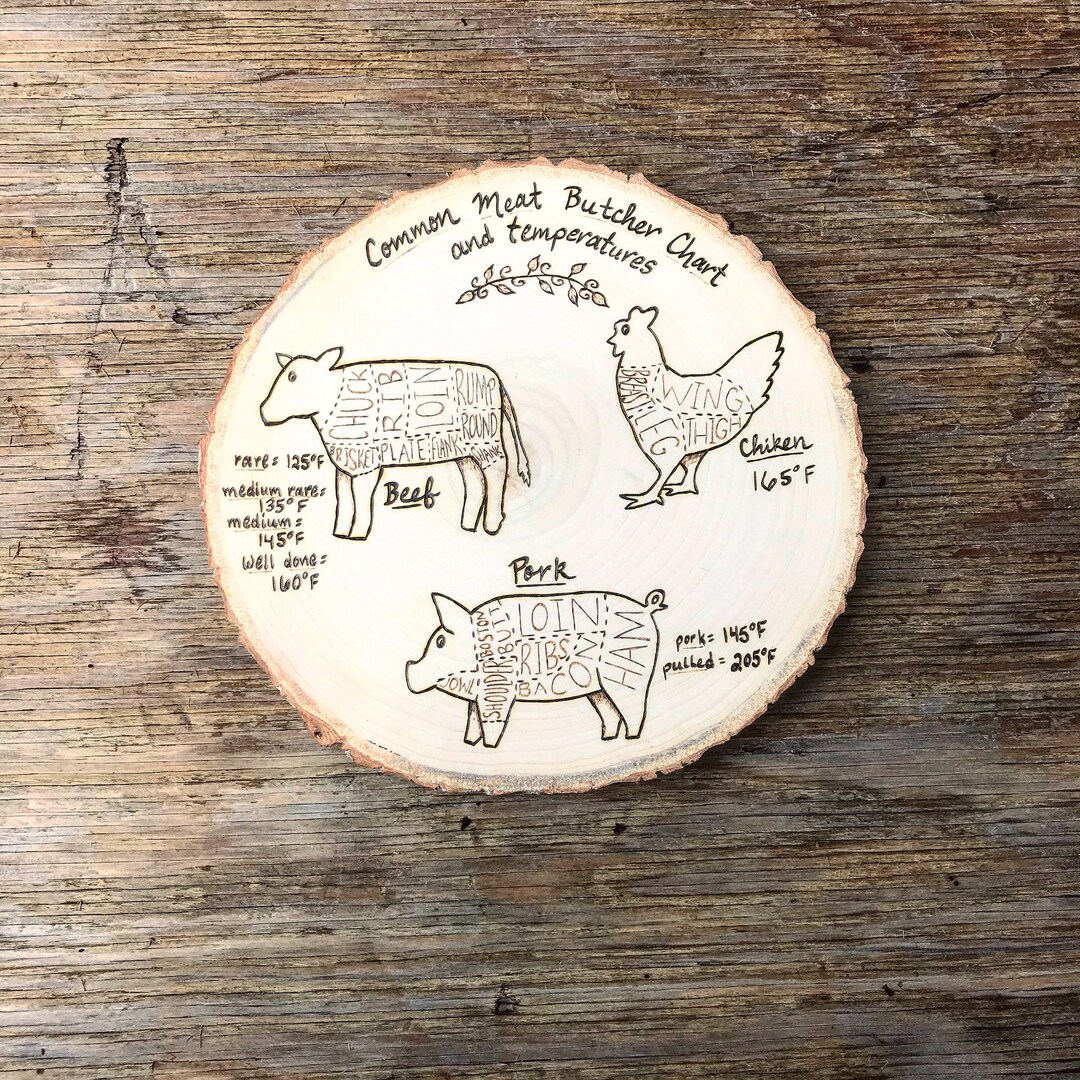 Common Meat Butcher Chart
and temperatures
CHUCK
RIB
LOIN
RUMP
ROUND
BRISKET
PLATE
FLANK
SHANK
Beef
rare = 125°F
medium rare =
135°F
medium =
145°F
well done =
160°F
BREAST
WING
LEG
THIGH
Chiken
165°F
Pork
JOWL
BOSTON
BUTT
SHOULDER
LOIN
RIBS
BACON
HAM
pork = 145°F
pulled = 205°F